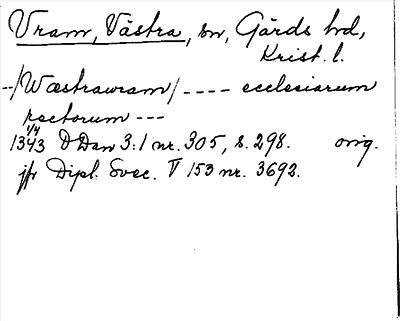 Vram, Västra, sn, Gärds hd,
Krist. l.
--/Wæstrawram/---- ecclesiarum
rectorum ---
1/4
1343 DDan 3:1 nr. 305, s. 298. orig.
jfr Dipl. Svec. V 153 nr. 3692.